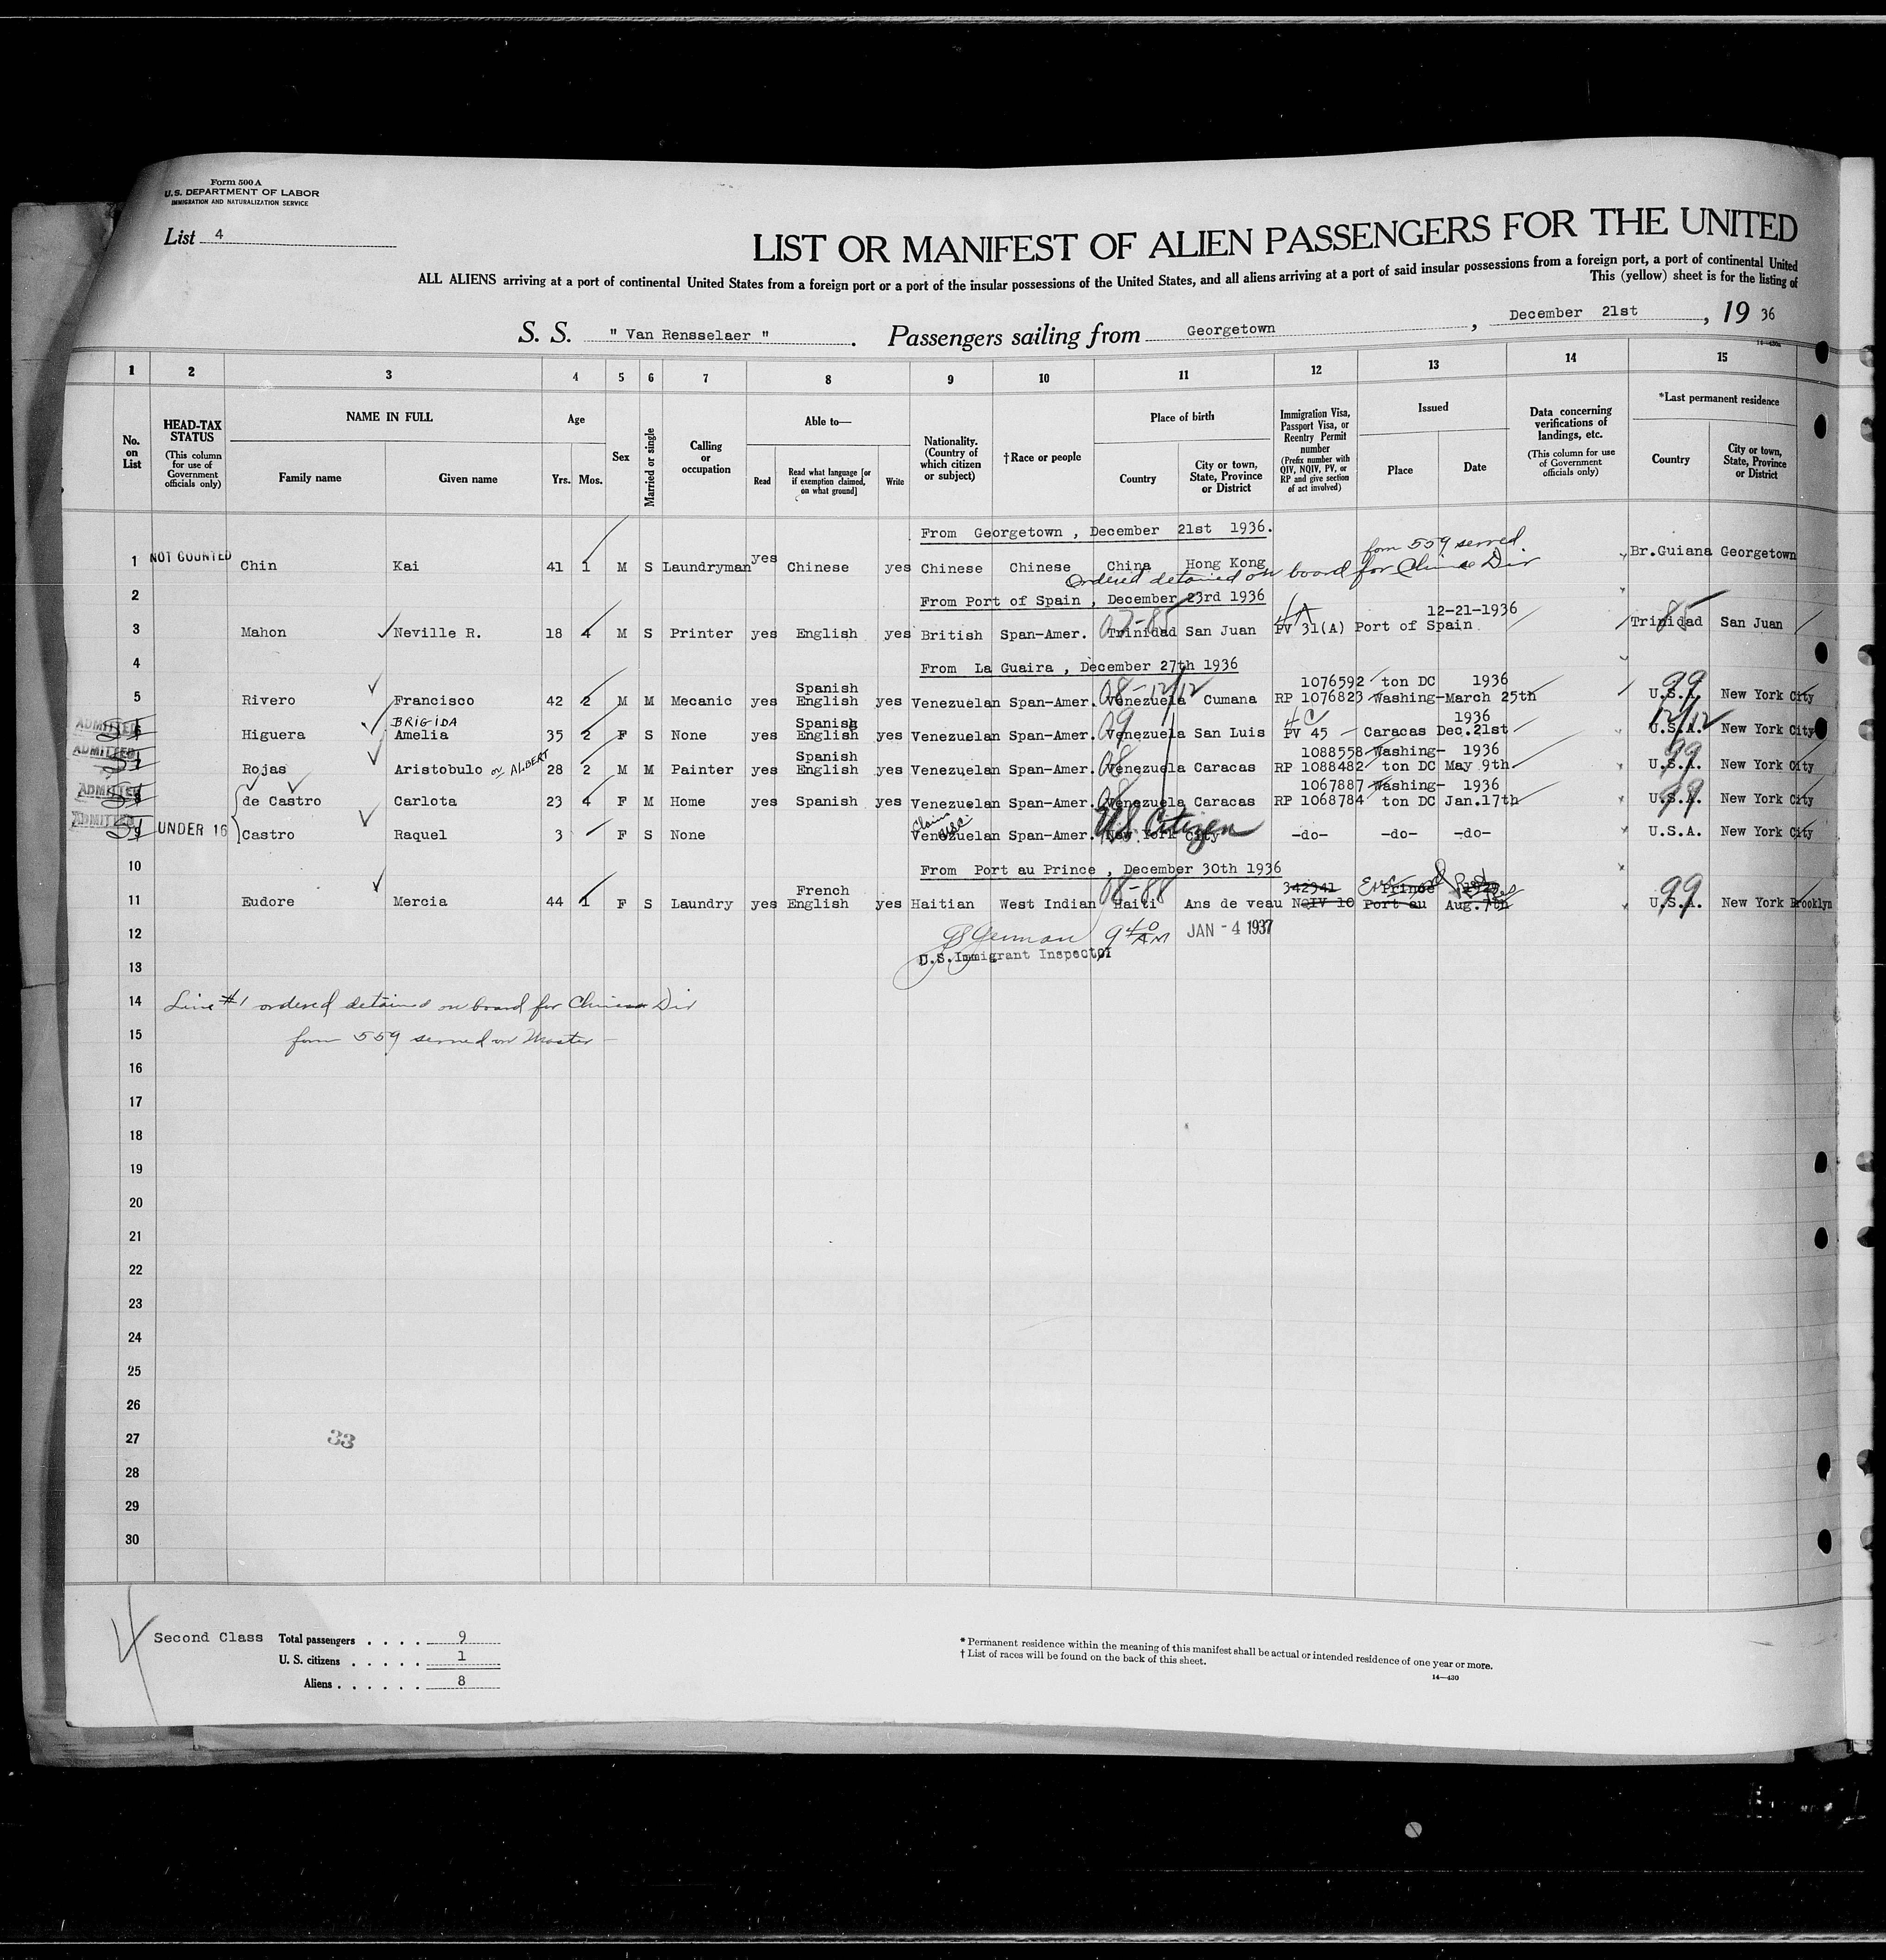 Form 500 A
U.S. DEPARTMENT OF LABOR
IMMIGRATION AND NATURALIZATION SERVICE
List 4
LIST OR MANIFEST OF ALIEN PASSENGERS FOR THE UNITED
ALL ALIENS arriving at a port of continental United States from a foreign port or a port of the insular possessions of the United States, and all aliens arriving at a port of said insular possessions from a foreign port, a port of continental United
This (yellow) sheet is for the listing of
S. S. " Van Rensselaer ". Passengers sailing from Georgetown, December 21st, 19 36
1 2 3 4 5 6 7 8 9 10 11 12 13 14 15
No. on List
HEAD-TAX STATUS (This column for use of Government officials only)
NAME IN FULL
Family name Given name
Age
Yrs. Mos.
Sex
Married or single
Calling or occupation
Able to—
Read Read what language [or if exemption claimed, on what ground] Write
Nationality. (Country of which citizen or subject)
†Race or people
Place of birth
Country City or town, State, Province or District
Immigration Visa, Passport Visa, or Reentry Permit number (Prefix number with QIV, NQIV, PV, or RP and give section of act involved)
Issued
Place Date
Data concerning verifications of landings, etc. (This column for use of Government officials only)
*Last permanent residence
Country City or town, State, Province or District
From Georgetown , December 21st 1936.
form 559 served
1 NOT COUNTED Chin Kai 41 1 M S Laundryman yes Chinese yes Chinese Chinese China Hong Kong Br.Guiana Georgetown
Ordered detained on board for Chinese Div
2 From Port of Spain , December 23rd 1936
3 Mahon Neville R. 18 4 M S Printer yes English yes British Span-Amer. Trinidad San Juan PV 31(A) Port of Spain 12-21-1936 Trinidad 85 San Juan
4 From La Guaira , December 27th 1936
5 Rivero Francisco 42 2 M M Mecanic yes Spanish English yes Venezuelan Span-Amer. Venezuela Cumana 1076592 RP 1076823 Washing-ton DC 1936 March 25th U.S.A. 99 New York City
ADMITTED 6 Higuera BRIGIDA Amelia 35 2 F S None yes Spanish English yes Venezuelan Span-Amer. Venezuela San Luis PV 45 Caracas 1936 Dec.21st U.S.A. 12/12 New York City
ADMITTED 7 Rojas Aristobulo or ALBERT 28 2 M M Painter yes Spanish English yes Venezuelan Span-Amer. Venezuela Caracas 1088558 RP 1088482 Washing-ton DC 1936 May 9th U.S.A. 99 New York City
ADMITTED 8 de Castro Carlota 23 4 F M Home yes Spanish yes Venezuelan Span-Amer. Venezuela Caracas 1067887 RP 1068784 Washing-ton DC 1936 Jan.17th U.S.A. 99 New York City
ADMITTED 9 UNDER 16 Castro Raquel 3 F S None Claims USC Venezuelan Span-Amer. New York City US Citizen -do- -do- -do- U.S.A. New York City
10 From Port au Prince , December 30th 1936
11 Eudore Mercia 44 1 F S Laundry yes French English yes Haitian West Indian Haiti 08-88 Ans de veau 342341 NQIV 10 Port au Prince Aug.7th U.S.A. 99 New York Brooklyn
12 9 40 AM JAN - 4 1937
U.S.Immigrant Inspector
13
14 Line #1 ordered detained on board for Chinese Div
15 form 559 served on Master
16
17
18
19
20
21
22
23
24
25
26
27 33
28
29
30
4
Second Class Total passengers . . . . 9
U. S. citizens . . . . . 1
Aliens . . . . . . 8
* Permanent residence within the meaning of this manifest shall be actual or intended residence of one year or more.
† List of races will be found on the back of this sheet.
14—430